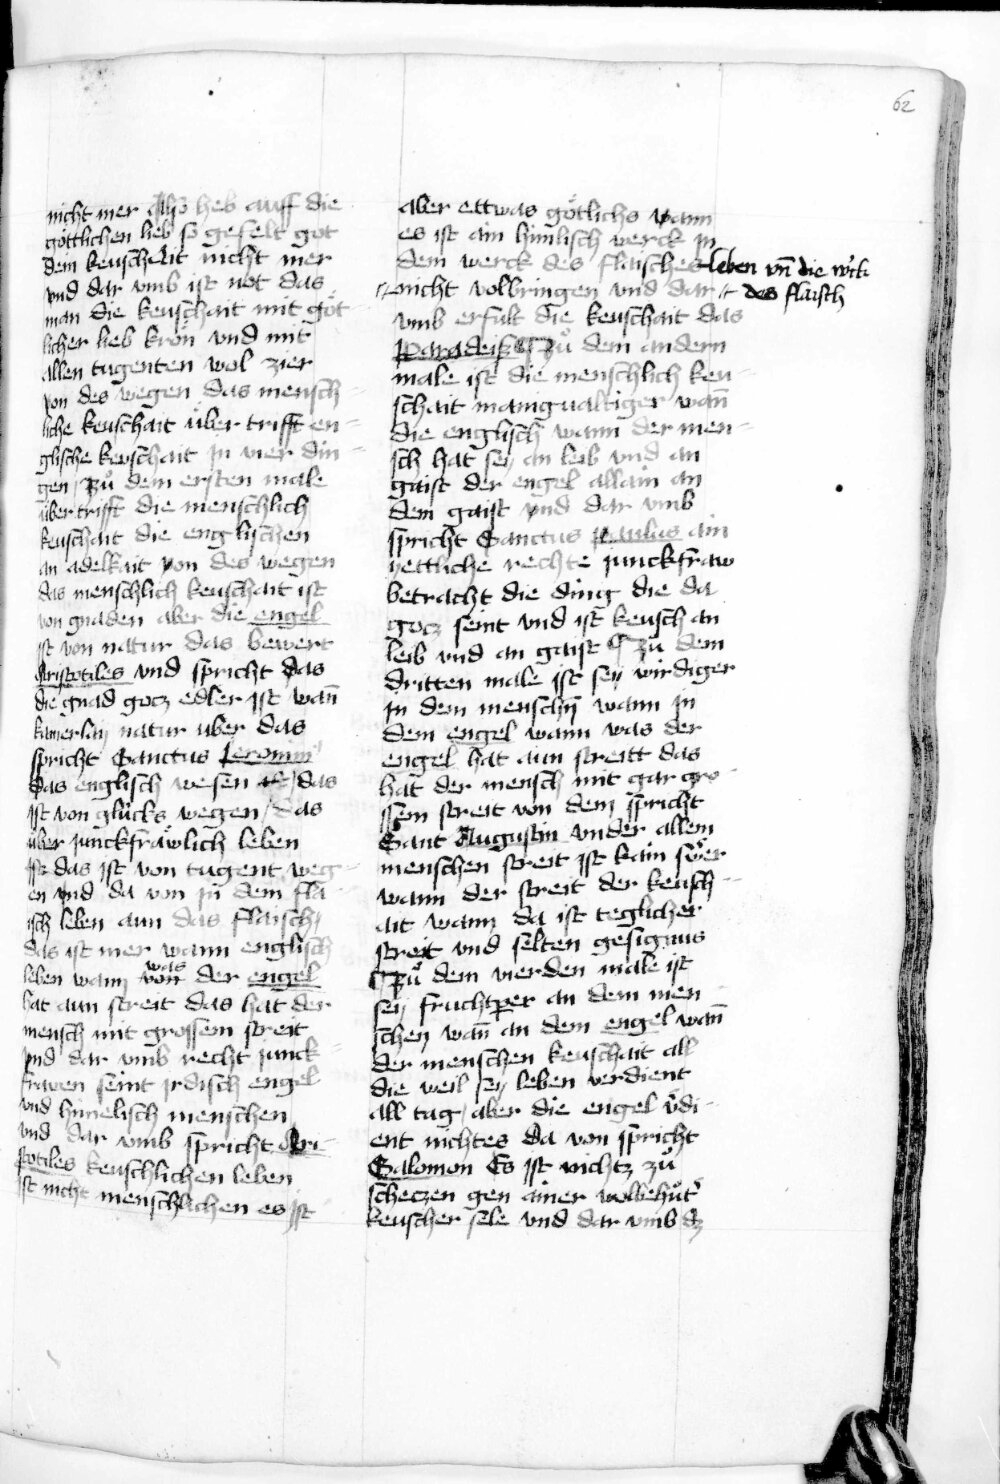 62
nicht mer Also heb auff die
göttlichen lieb so gefelt got
dein keuschait nicht mer
vnd dar vmb ist not das
man die keuschait mit göt
licher lieb krön vnd mit
allen tugenten wol zier
von des wegen das mensch
liche keuschait über trifft en
glische keuschait in vier din
gen / Zů dem ersten male
über trifft die menschlich
keuschait die englischen
an adelkait von des wegen
das menschlich keuschait ist
von gnaden aber die engel
ist von natur das bewert
Aristotiles vnd spricht das
die gnad gocz edler ist wan̄
kainerlaÿ natur uber das
spricht Sanctus Jeronim9
das englisch wesen / das
ist von glücks wegen / das
über junckfräwlich leben
das ist von tugent weg
en vnd da von in dem fla
isch leben aun das flaisch
das ist mer wann englisch
leben wann was der engel
hat aun streit das hat der
mensch mit grossem streit
vnd dar vmb recht junck
frawen seint jrdisch engel
vnd himelisch menschen
vnd dar vmb spricht Ari
stotiles keuschlichen leben
ist nicht menschlichen es ist
aber ettwas götlichs wann
es ist ain himlisch werck in
dem werck des flaisches leben vn̄ die w̓ck
nicht volbringen vnd dar des flaisch
vmb erfült die keuschait das
Paradeiß Zů dem andern
male ist die menschlich keu
schait manigualtiger wan̄
die englisch wann der men
sch hat seÿ an leib vnd an
gaist der engel allain an
dem gaist vnd dar vmb
spricht Sanctus Paulus ain
yettliche rechte junckfraw
betracht die ding die da
gocz seint vnd ist keusch an
leib vnd an gaist Zů dem
dritten male ist seÿ wirdiger
in dem menschn̄ wann in
dem engel wann was der
engel hat aun streitt das
hat der mensch mit gar gro
ssem streit von dem spricht
Sant Augustin vnder allem
menschen streit ist kain swer
wann der streit der keusch
ait wann da ist teglicher
streit vnd selten gesignus
Zů dem vierden male ist
seÿ fruchtper an dem men
schen wan̄ an dem engel wan̄
der menschen keuschait all
die weil seÿ leben verdient
all tag / aber die engel v̓di
ent nichtes da von spricht
Salomon Es ist nichtz zů
scheczen gen ainer wolbehüt̓
keuscher sele vnd dar vmb dz